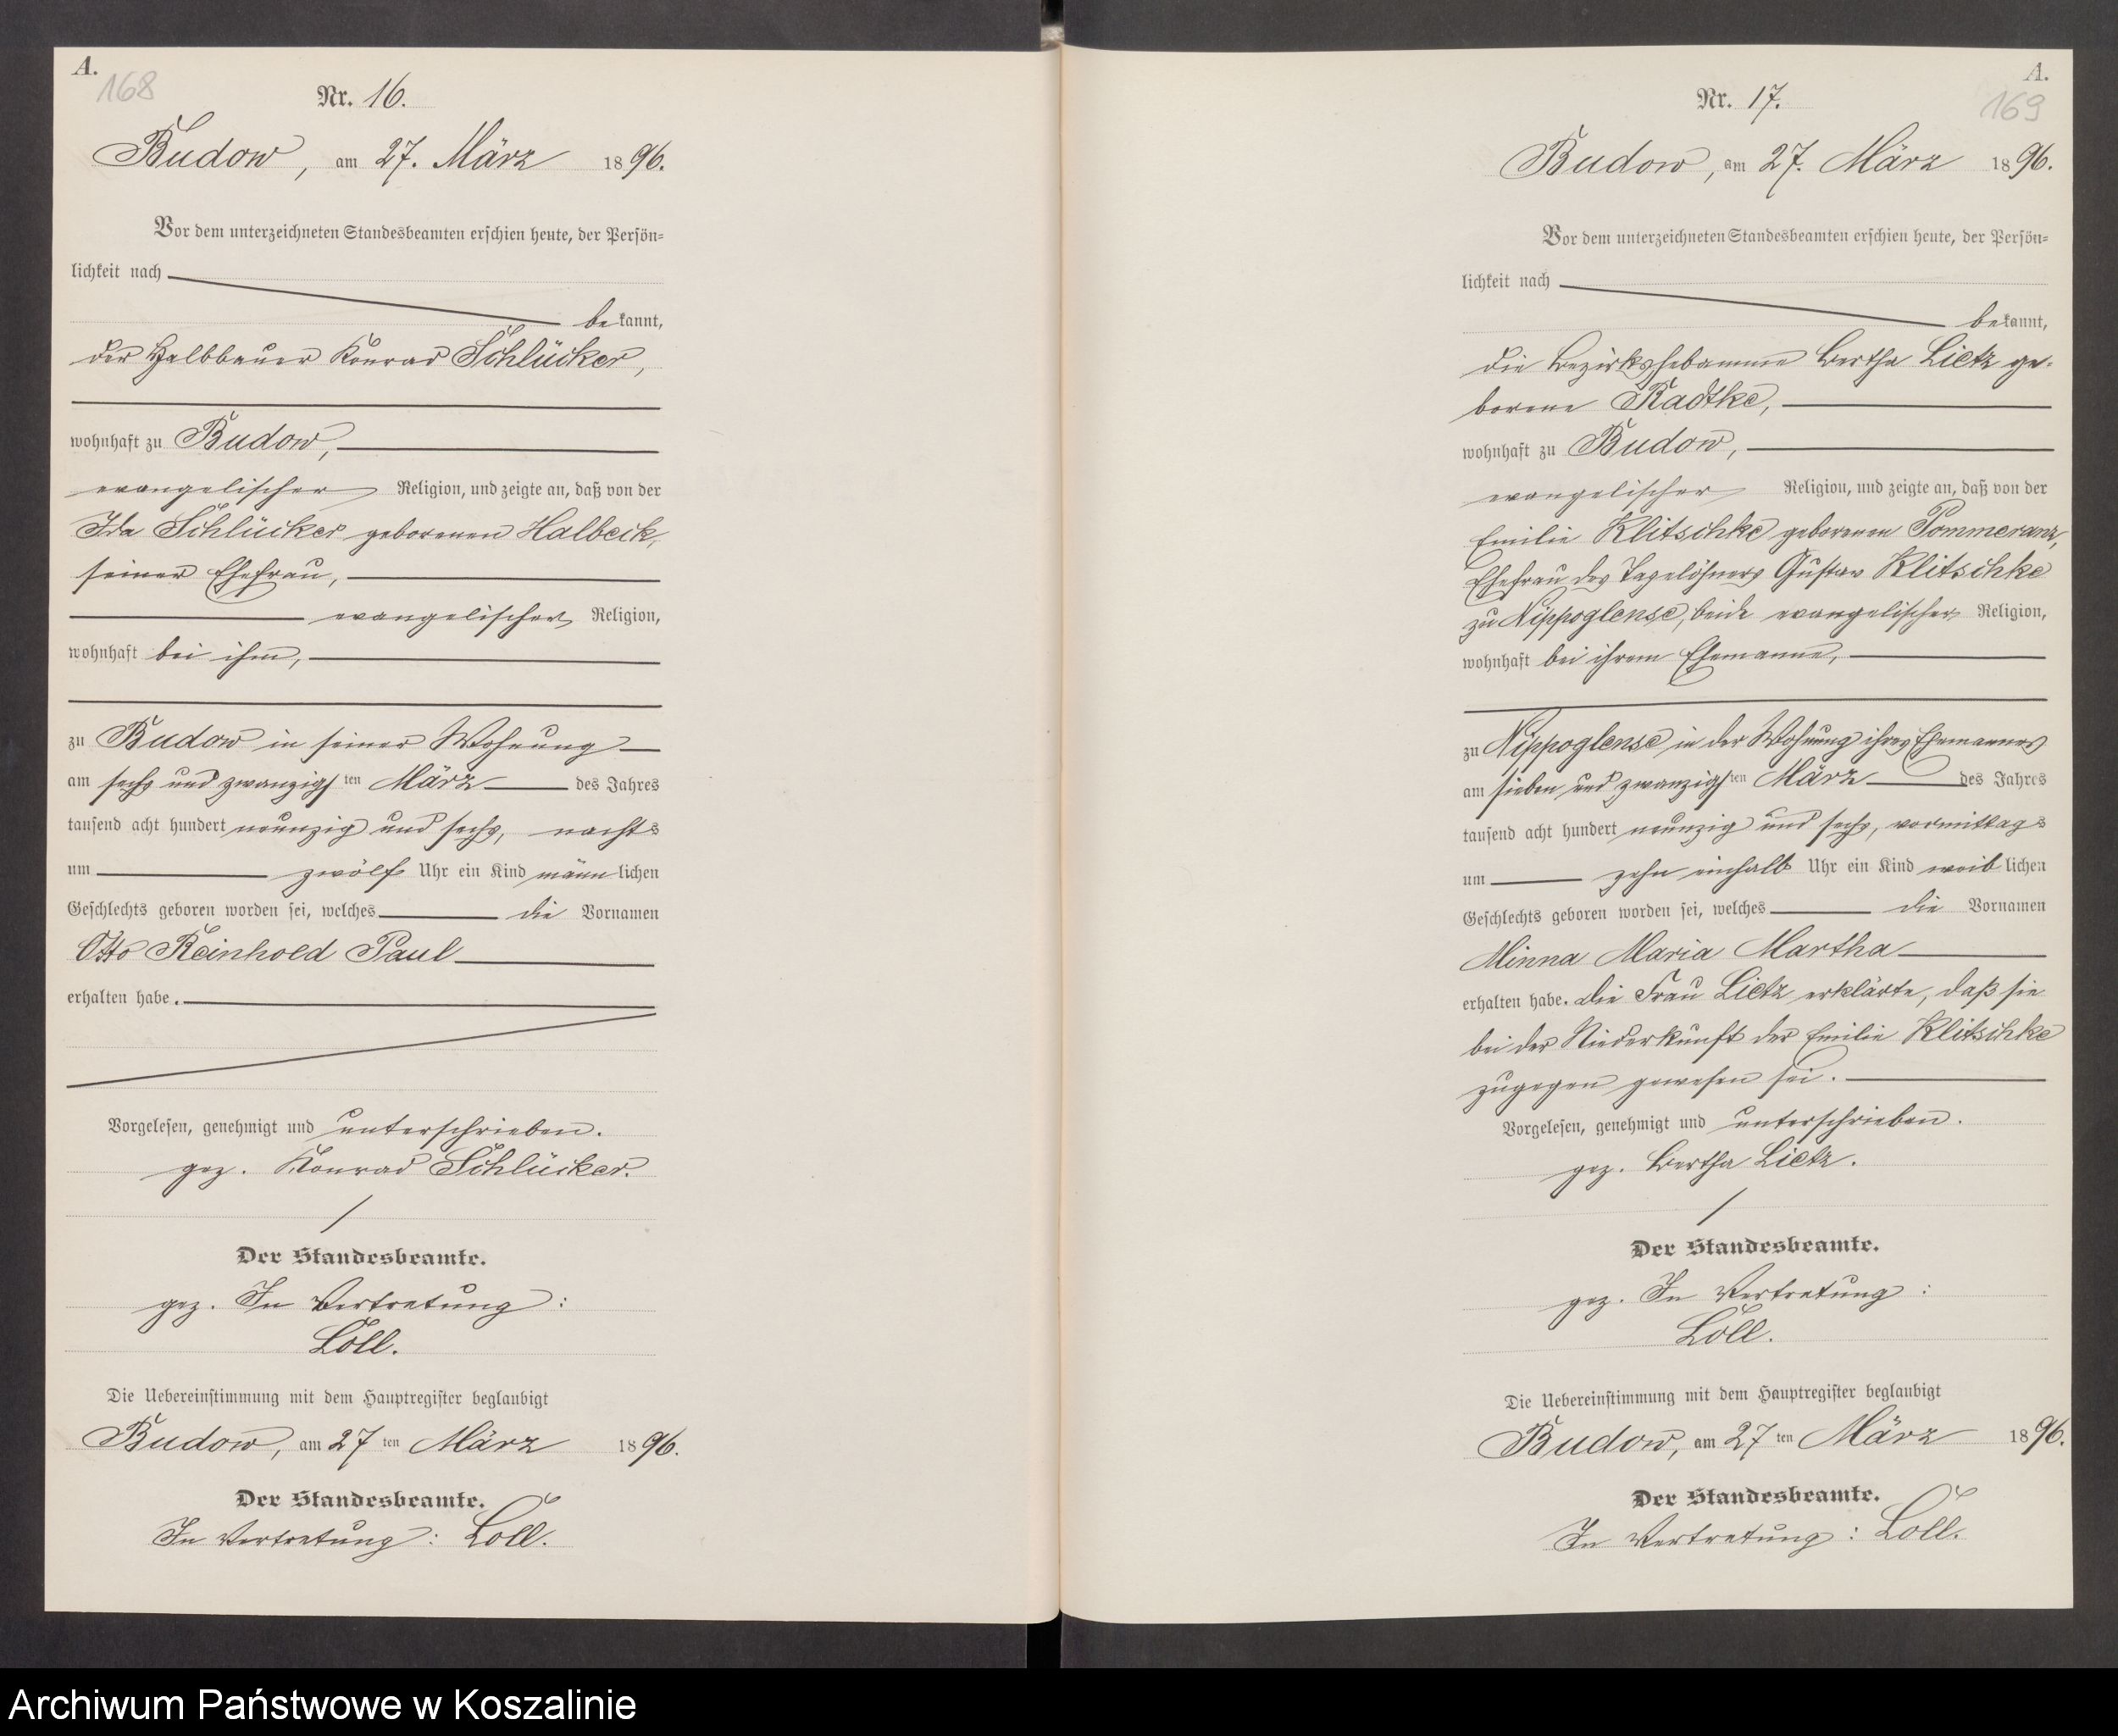 A.
168
Nr. 16.
Budow, am 27. März 1896.
Vor dem unterzeichneten Standesbeamten erschien heute, der Persön=
lichkeit nach
bekannt,
der Halbbauer Konrad Schlücker,
wohnhaft zu Budow,
evangelischer Religion, und zeigte an, daß von der
Ida Schlücker geborenen Halbeck,
seiner Ehefrau,
evangelischer Religion,
wohnhaft bei ihm,
zu Budow in seiner Wohnung
am sechs und zwanzigsten März des Jahres
tausend acht hundert neunzig und sechs, nachts
um zwölf Uhr ein Kind männlichen
Geschlechts geboren worden sei, welches die Vornamen
Otto Reinhold Paul
erhalten habe.
Vorgelesen, genehmigt und unterschrieben.
gez. Konrad Schlücker.
Der Standesbeamte.
gez. In Vertretung:
Loll.
Die Uebereinstimmung mit dem Hauptregister beglaubigt
Budow, am 27ten März 1896.
Der Standesbeamte.
In Vertretung: Loll.
A.
169
Nr. 17.
Budow, am 27. März 1896.
Vor dem unterzeichneten Standesbeamten erschien heute, der Persön=
lichkeit nach
bekannt,
die Bezirkshebamme Bertha Lietz ge-
borene Radtke,
wohnhaft zu Budow,
evangelischer Religion, und zeigte an, daß von der
Emilie Klitschke geborenen Pommeranz,
Ehefrau des Tagelöhners Gustav Klitschke
zu Nippoglense, beide evangelischer Religion,
wohnhaft bei ihrem Ehemanne,
zu Nippoglense in der Wohnung ihres Ehemannes
am sieben und zwanzigsten März des Jahres
tausend acht hundert neunzig und sechs, vormittags
um zehn einhalb Uhr ein Kind weiblichen
Geschlechts geboren worden sei, welches die Vornamen
Minna Maria Martha
erhalten habe. Die Frau Lietz erklärte, daß sie
bei der Niederkunft der Emilie Klitschke
zugegen gewesen sei.
Vorgelesen, genehmigt und unterschrieben.
gez. Bertha Lietz.
Der Standesbeamte.
gez. In Vertretung:
Loll.
Die Uebereinstimmung mit dem Hauptregister beglaubigt
Budow, am 27ten März 1896.
Der Standesbeamte.
In Vertretung: Loll.
Archiwum Państwowe w Koszalinie